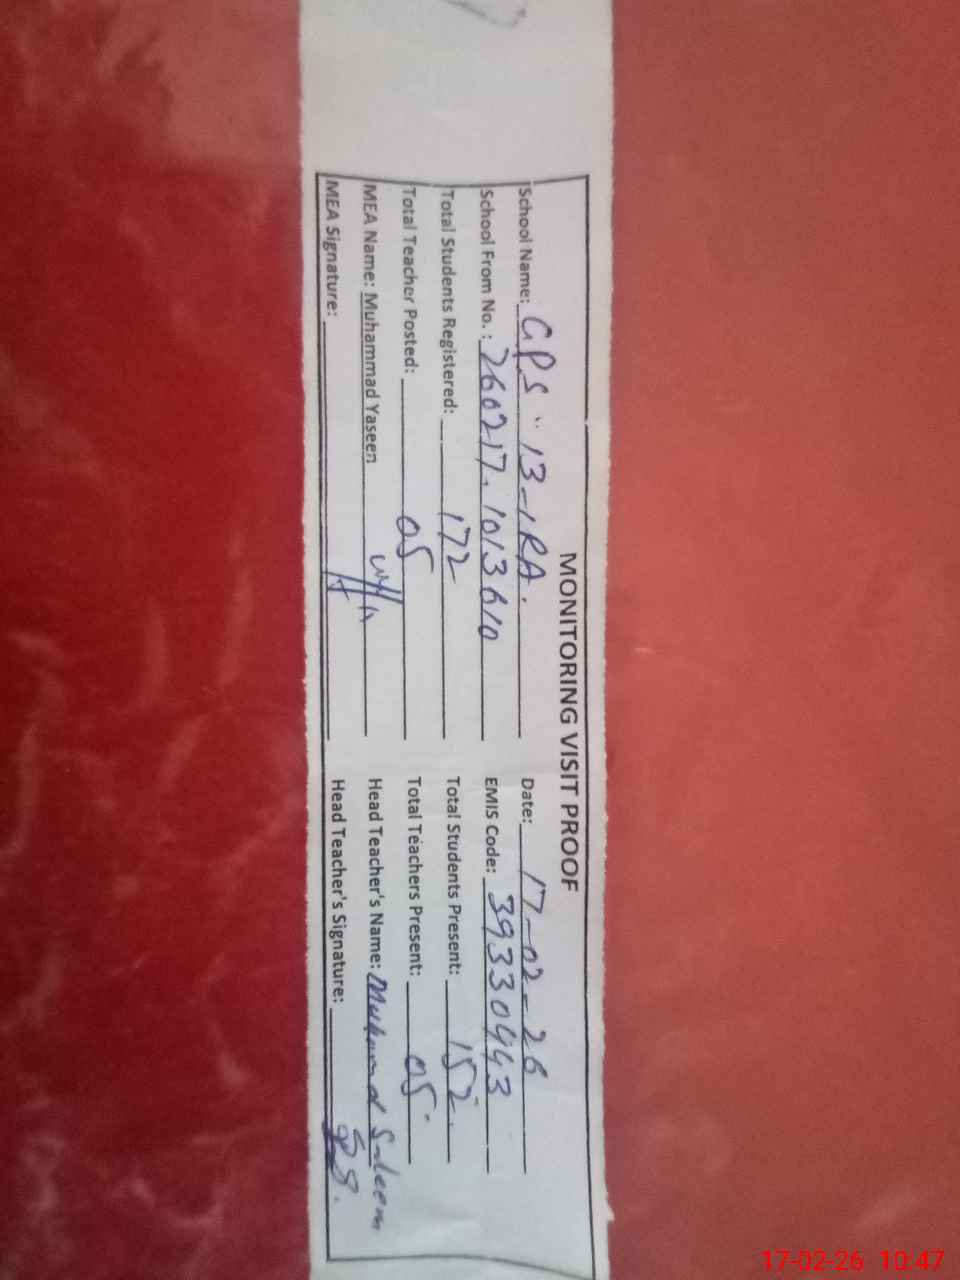 MONITORING VISIT PROOF
School Name: GPS 13-1RA. Date: 17-02-26
School From No. : 260217.1013610 EMIS Code: 39330443
Total Students Registered: 172 Total Students Present: 152
Total Teacher Posted: 05 Total Teachers Present: 05
MEA Name: Muhammad Yaseen Head Teacher's Name: Muhammad Saleem
MEA Signature: Head Teacher's Signature:
17-02-26 10:47